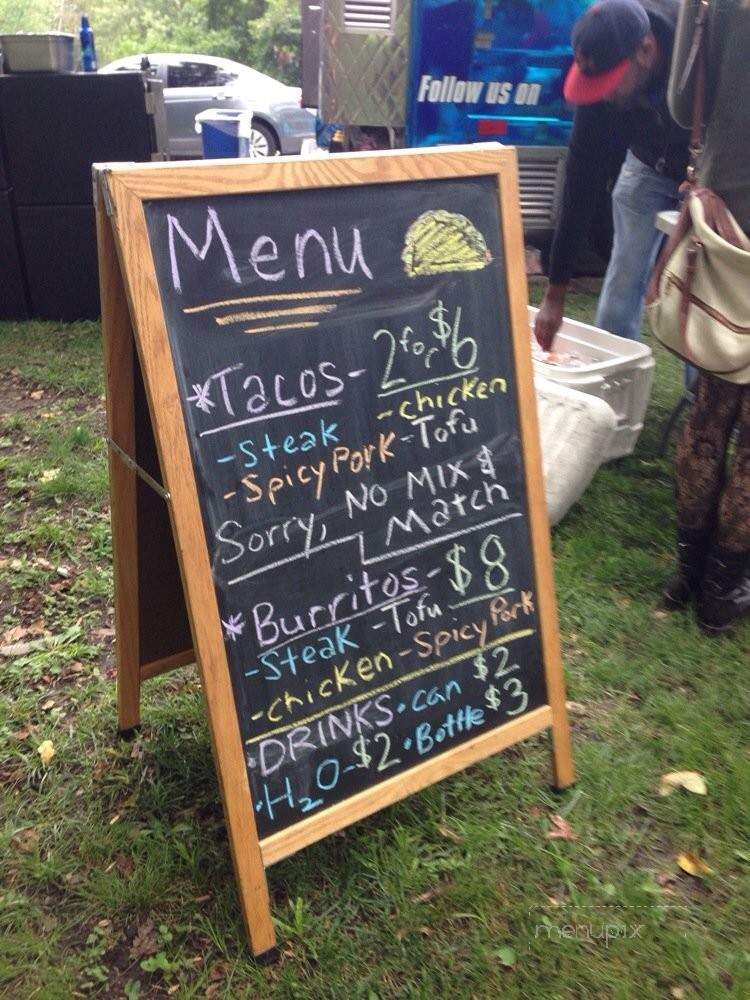 Follow us on
Menu
*Tacos- 2 for $6
-Steak -chicken
-Spicy Pork -Tofu
Sorry, NO MIX &
Match
*Burritos- $8
-Steak -Tofu
-chicken -Spicy Pork
•DRINKS •can $2
•H2O-$2 •Bottle $3
menupix